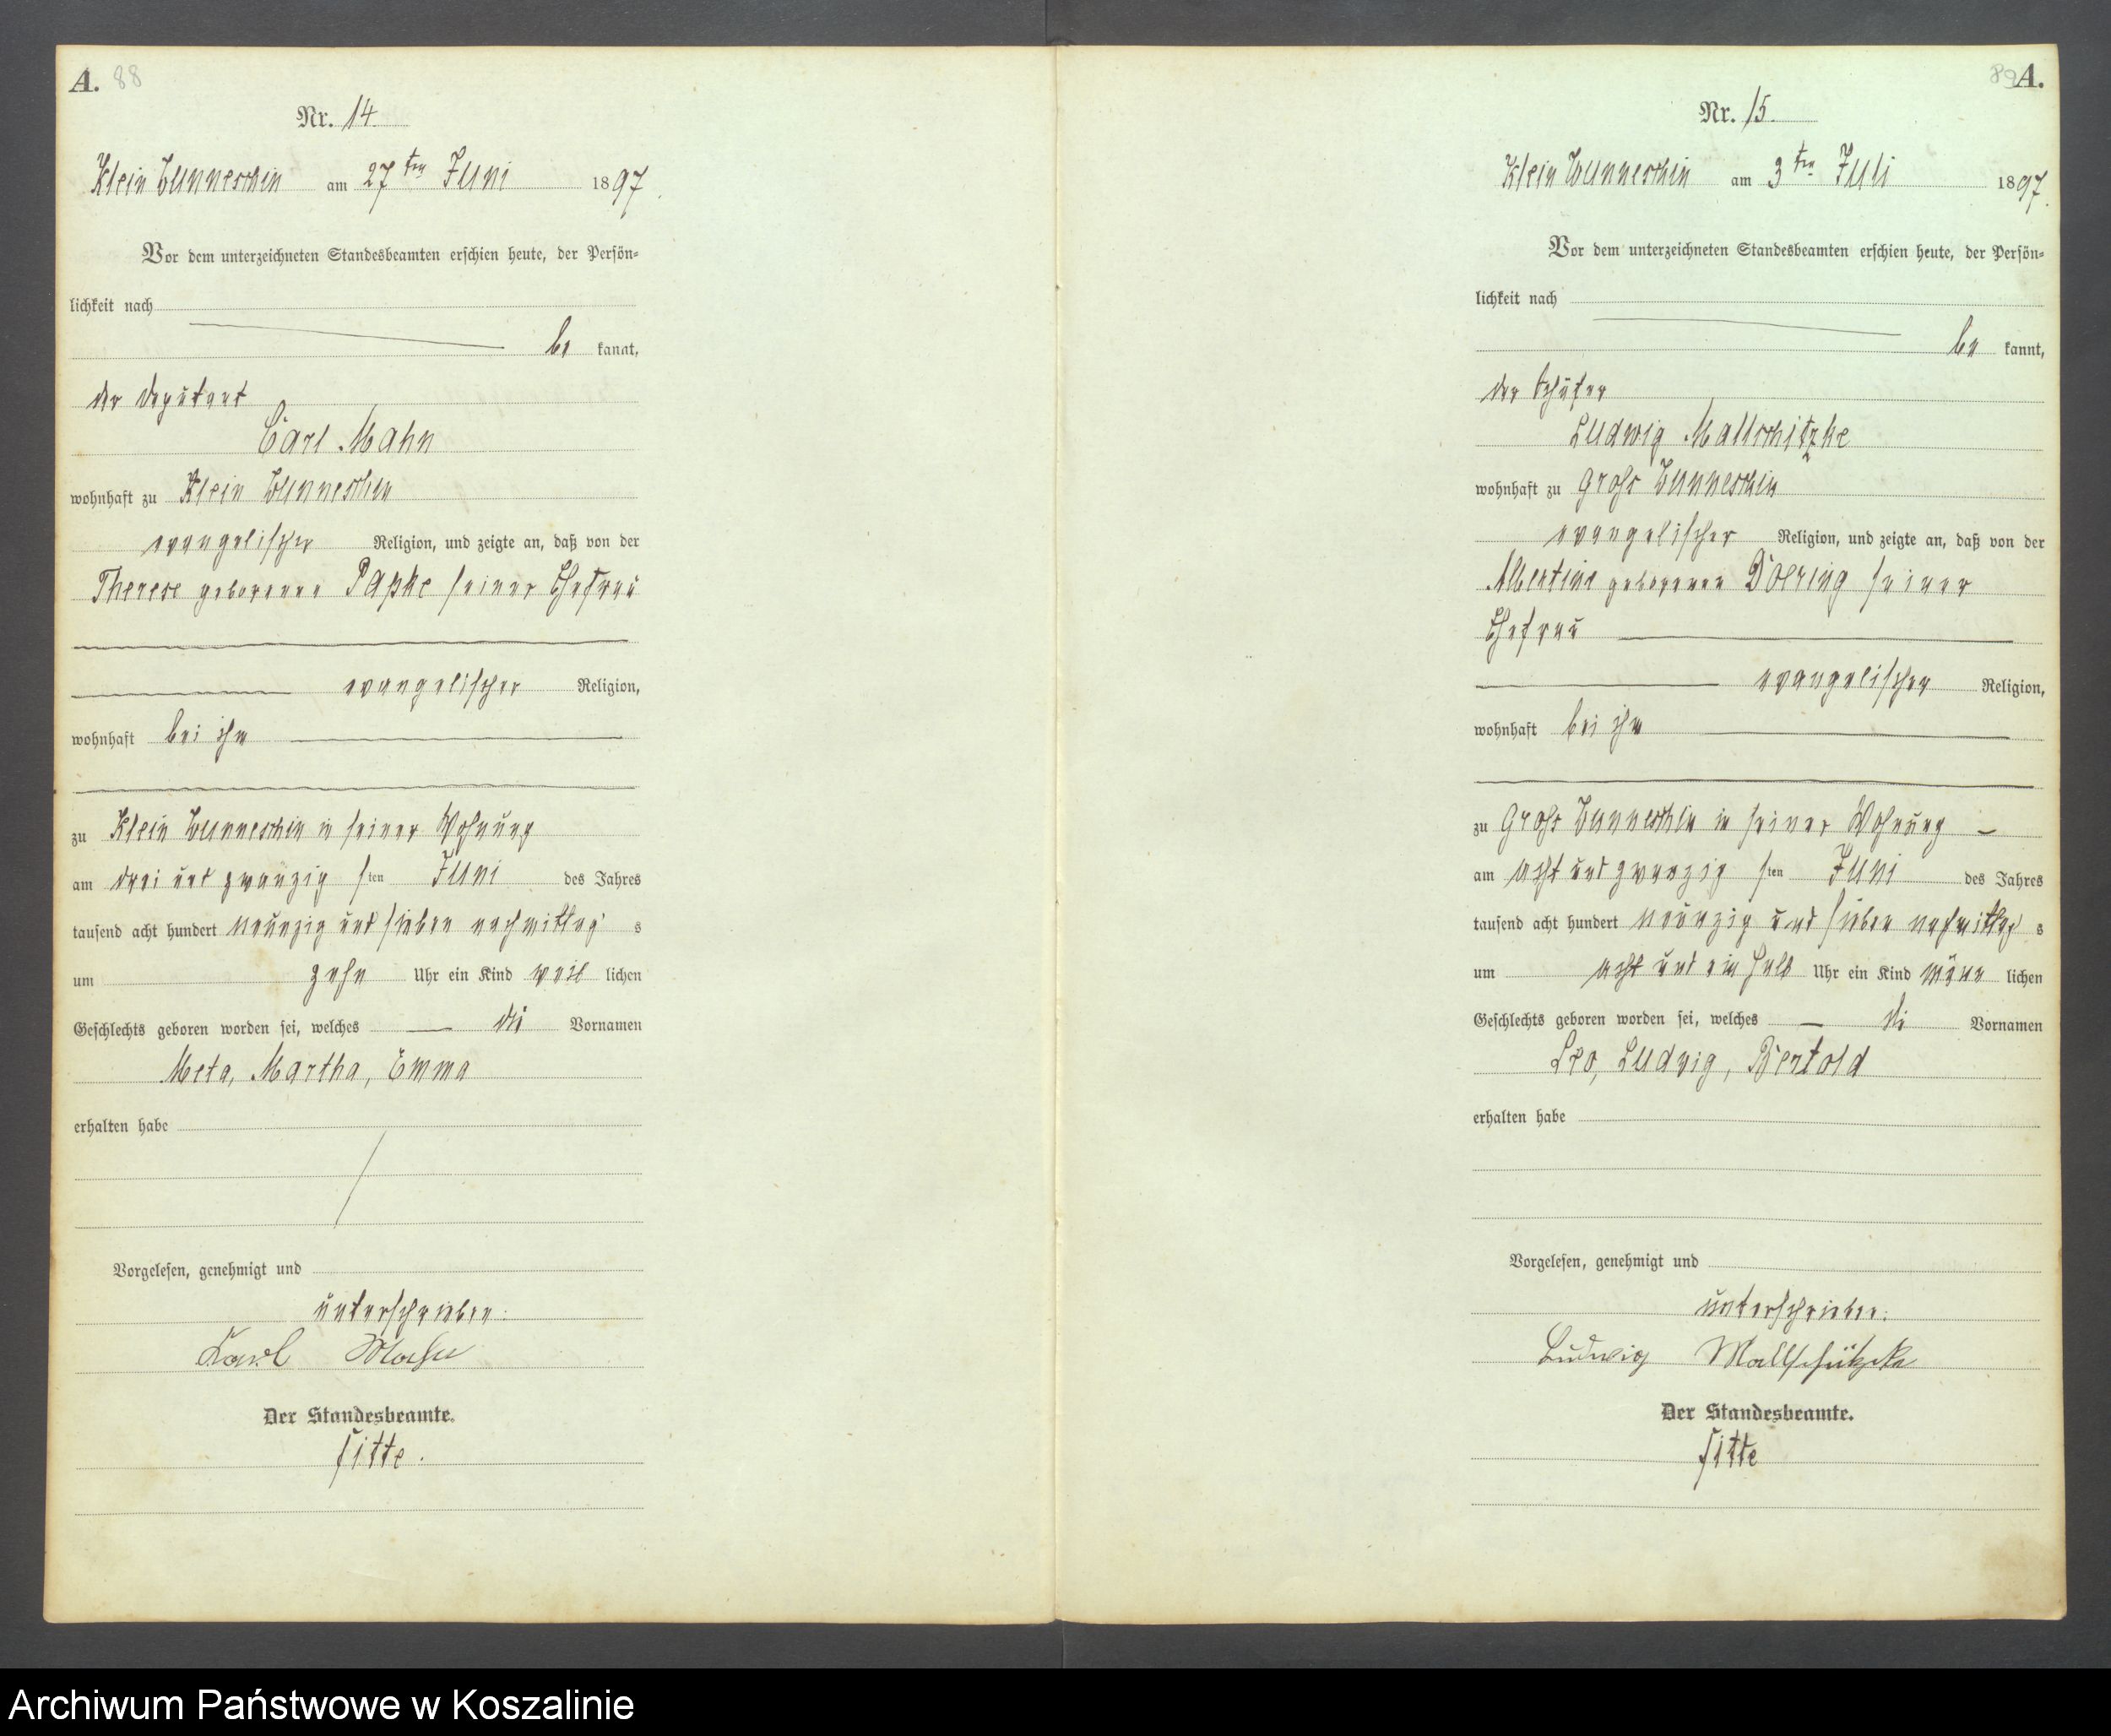 A. 88
Nr. 14
Klein Wunneschin am 27ten Juni 1897.
Vor dem unterzeichneten Standesbeamten erschien heute, der Persön-
lichkeit nach
be kannt,
der Deputant
Carl Mahn
wohnhaft zu Klein Wunneschin
evangelischer Religion, und zeigte an, daß von der
Therese geborenen Papke seiner Ehefrau
evangelischer Religion,
wohnhaft bei ihm
zu Klein Wunneschin in seiner Wohnung
am drei und zwanzig sten Juni des Jahres
tausend acht hundert neunzig und sieben nachmittag s
um zehn Uhr ein Kind weib lichen
Geschlechts geboren worden sei, welches die Vornamen
Meta, Martha, Emma
erhalten habe
Vorgelesen, genehmigt und
unterschrieben.
Karl Mahn
Der Standesbeamte.
Fitte.
89 A.
Nr. 15.
Klein Wunneschin am 3ten Juli 1897.
Vor dem unterzeichneten Standesbeamten erschien heute, der Persön-
lichkeit nach
be kannt,
der Schäfer
Ludwig Mallschitzke
wohnhaft zu Gross Wunneschin
evangelischer Religion, und zeigte an, daß von der
Albertine geborenen Doering seiner
Ehefrau
evangelischer Religion,
wohnhaft bei ihm
zu Gross Wunneschin in seiner Wohnung
am acht und zwanzig sten Juni des Jahres
tausend acht hundert neunzig und sieben nachmittag s
um acht und ein halb Uhr ein Kind männ lichen
Geschlechts geboren worden sei, welches die Vornamen
Leo, Ludwig, Bertold
erhalten habe
Vorgelesen, genehmigt und
unterschrieben.
Ludwig Mallschützke
Der Standesbeamte.
Fitte
Archiwum Państwowe w Koszalinie